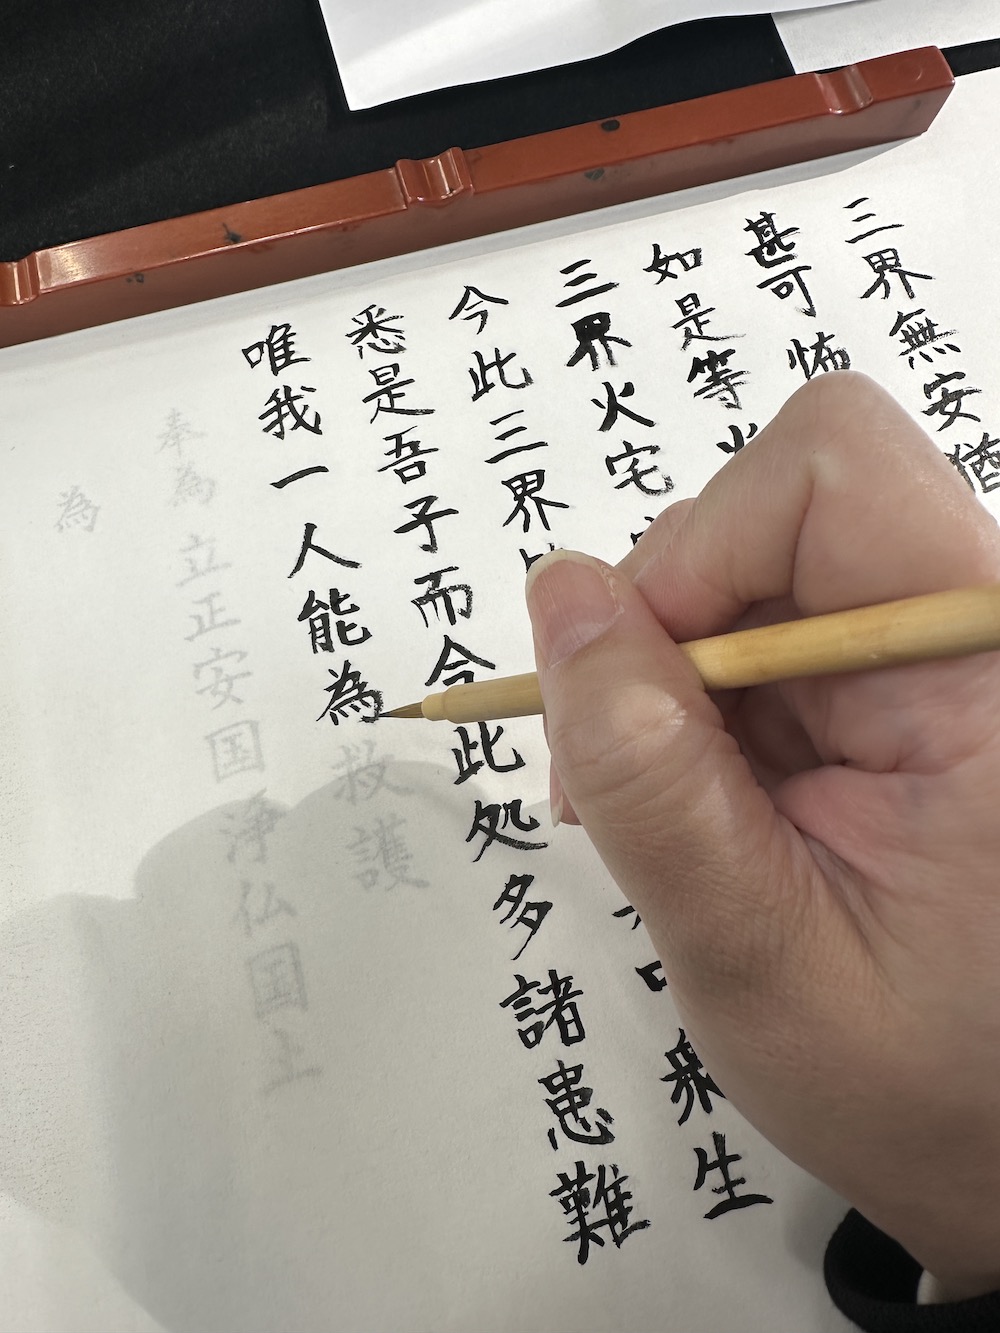 三界無安猶
甚可怖
如是等火
三界火宅
中衆生
今此三界
悉是吾子而今此処多諸患難
唯我一人能為救護
奉為立正安国浄仏国土
為